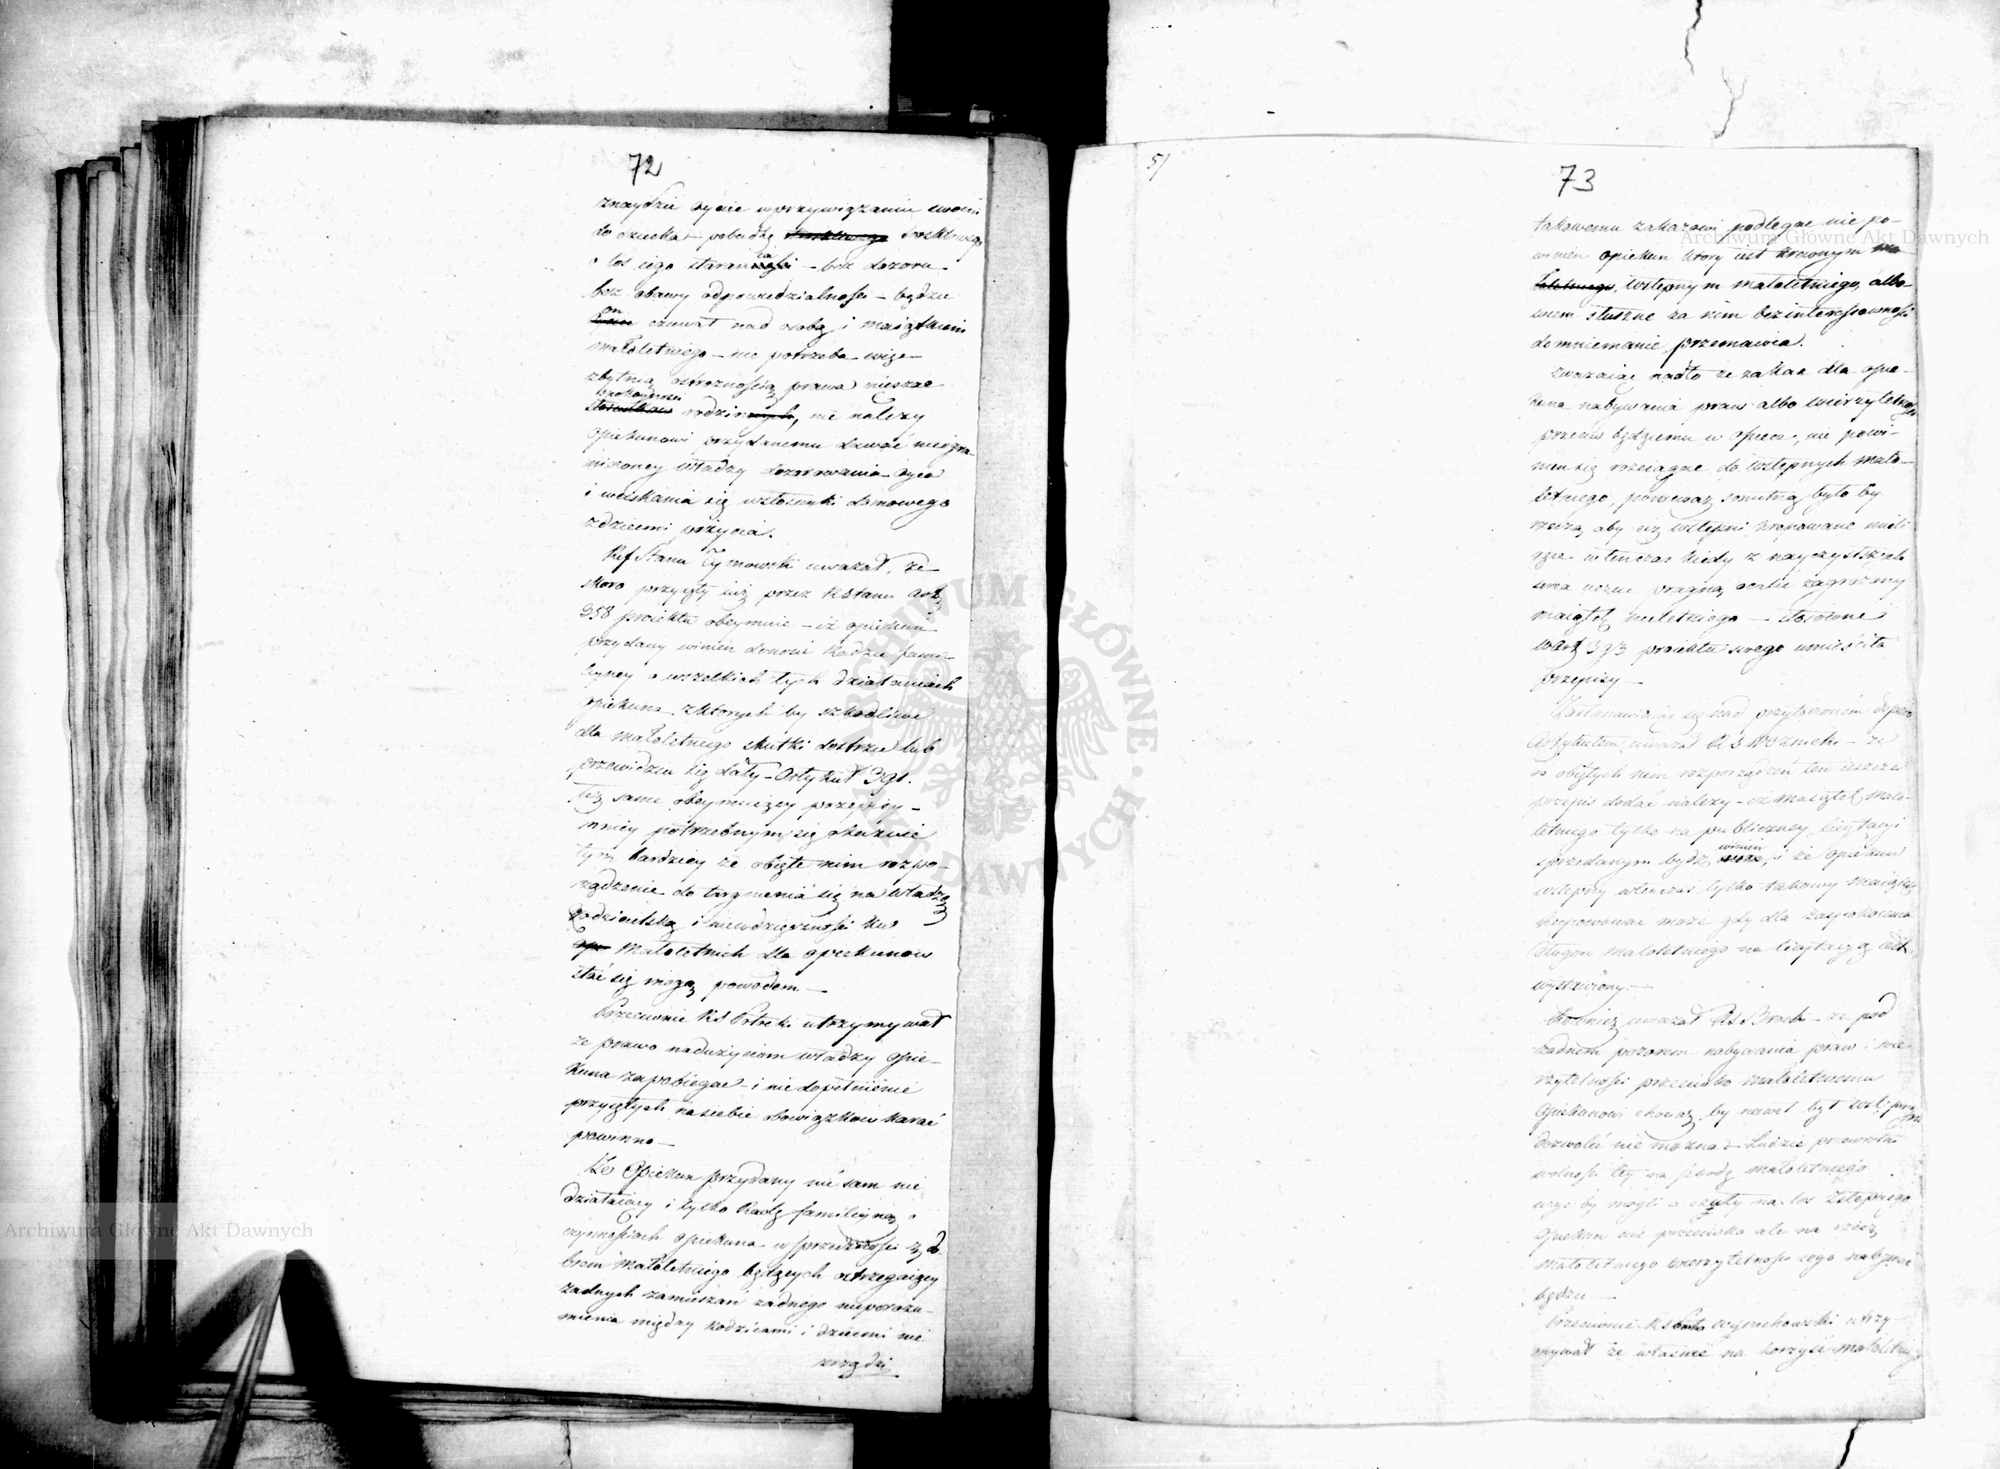 72
znaydzie oycie w przywiązaniu swoim
do dziecka pobudkę troskliwego
o los iego starania – bez dozoru
bez obawy odpowiedzialności – będzie
on czuwał nad osobą i maiątkiem
małoletniego – nie potrzeba więc
zbytnią ostrożnością prawa mieszać
spokoyności rodzin, nie należy
opiekunowi przydanemu dawać nieogra-
niczoney władzy dozorowania oyca
i wciskania się w stosunki domowego
z dziećmi pożycia.
Ref Stanu Tymowski uważał, że
skoro przyięty iuż przez R Stanu art
358 proiektu obeymuie – iż opiekun
przydany winien donosić Radzie fami-
liyney o wszelkich tych działaniach
opiekuna z których by szkodliwe
dla małoletniego skutki dostrzec lub
przewidzieć się dały – Artykuł 391.
też same obeymuiący przepisy –
mniey potrzebnym się okazuie
tym bardziey że obięte nim rozpo-
rządzenie do targnienia się na władzę
Rodzicielską i niewdzięczności ku
małoletnich dla opiekunów
stać się mogą powodem —
Przeciwnie RS Potocki utrzymywał
że prawo nadużyciom władzy opie-
kuna zapobiegać – i niedopełnienie
przyiętych na siebie obowiązków karać
powinno —
Że Opiekun przydany nie sam nie
działaiący i tylko Radę familiyną o
czynnościach opiekuna w sprzeczności z do-
brem małoletniego będących ostrzegaiący
żadnych zamieszań żadnego nieporozu-
mienia między Rodzicami i dziećmi nie
urządzi
5/
73
takowemu zakazowi podlegać nie po-
winien opiekun który iest krewnym
wstępnym małoletniego, albo-
wiem słuszne za nim bezinteressowności
domniemanie przemawia.
Zważaiąc nadto że zakaz dla opie-
kuna nabywania praw albo wierzytelności
przeciw będącemu w opiece, nie powi-
nien się rozciągać do wstępnych mało-
letniego, ponieważ smutną było by
rzeczą aby ciż wstępni krępowane mieli
ręce wtenczas kiedy z nayczystszych
serca uczuć pragną ocalić zagrożony
maiątek nieletniego — stosowne
w art 393 proiektu swego umieściła
przepisy —
Zastanawiaiąc się nad przytoczonem dopiero
Artykułem, uważał R S Woźnicki – że
do obiętych nim rozporządzeń ten ieszcze
przepis dodać należy – iż maiątek mało-
letniego tylko na publiczney licytacyi
sprzedanym bydź winien, i że opiekun
wstępny wtenczas tylko takowy maiątek
kupować może gdy dla zaspokoienia
długów małoletniego na licytacyą iest
wystawiony. —
Również uważał RS Brocki – że pod
żadnem pozorem nabywania praw i wie-
rzytelności przeciwko małoletniemu
Opiekunowi chociaż by nawet był wstępnym
dozwolić nie można – Ludzie przewrotni
wolności tey na szkodę małoletniego
użyć by mogli a czuły na los
opiekun nie przeciwko ale na rzecz
małoletniego wierzytelności iego nabywać
będzie —
Przeciwnie RS Woyciechowski utrzy-
mywał że właśnie na korzyść małoletniego